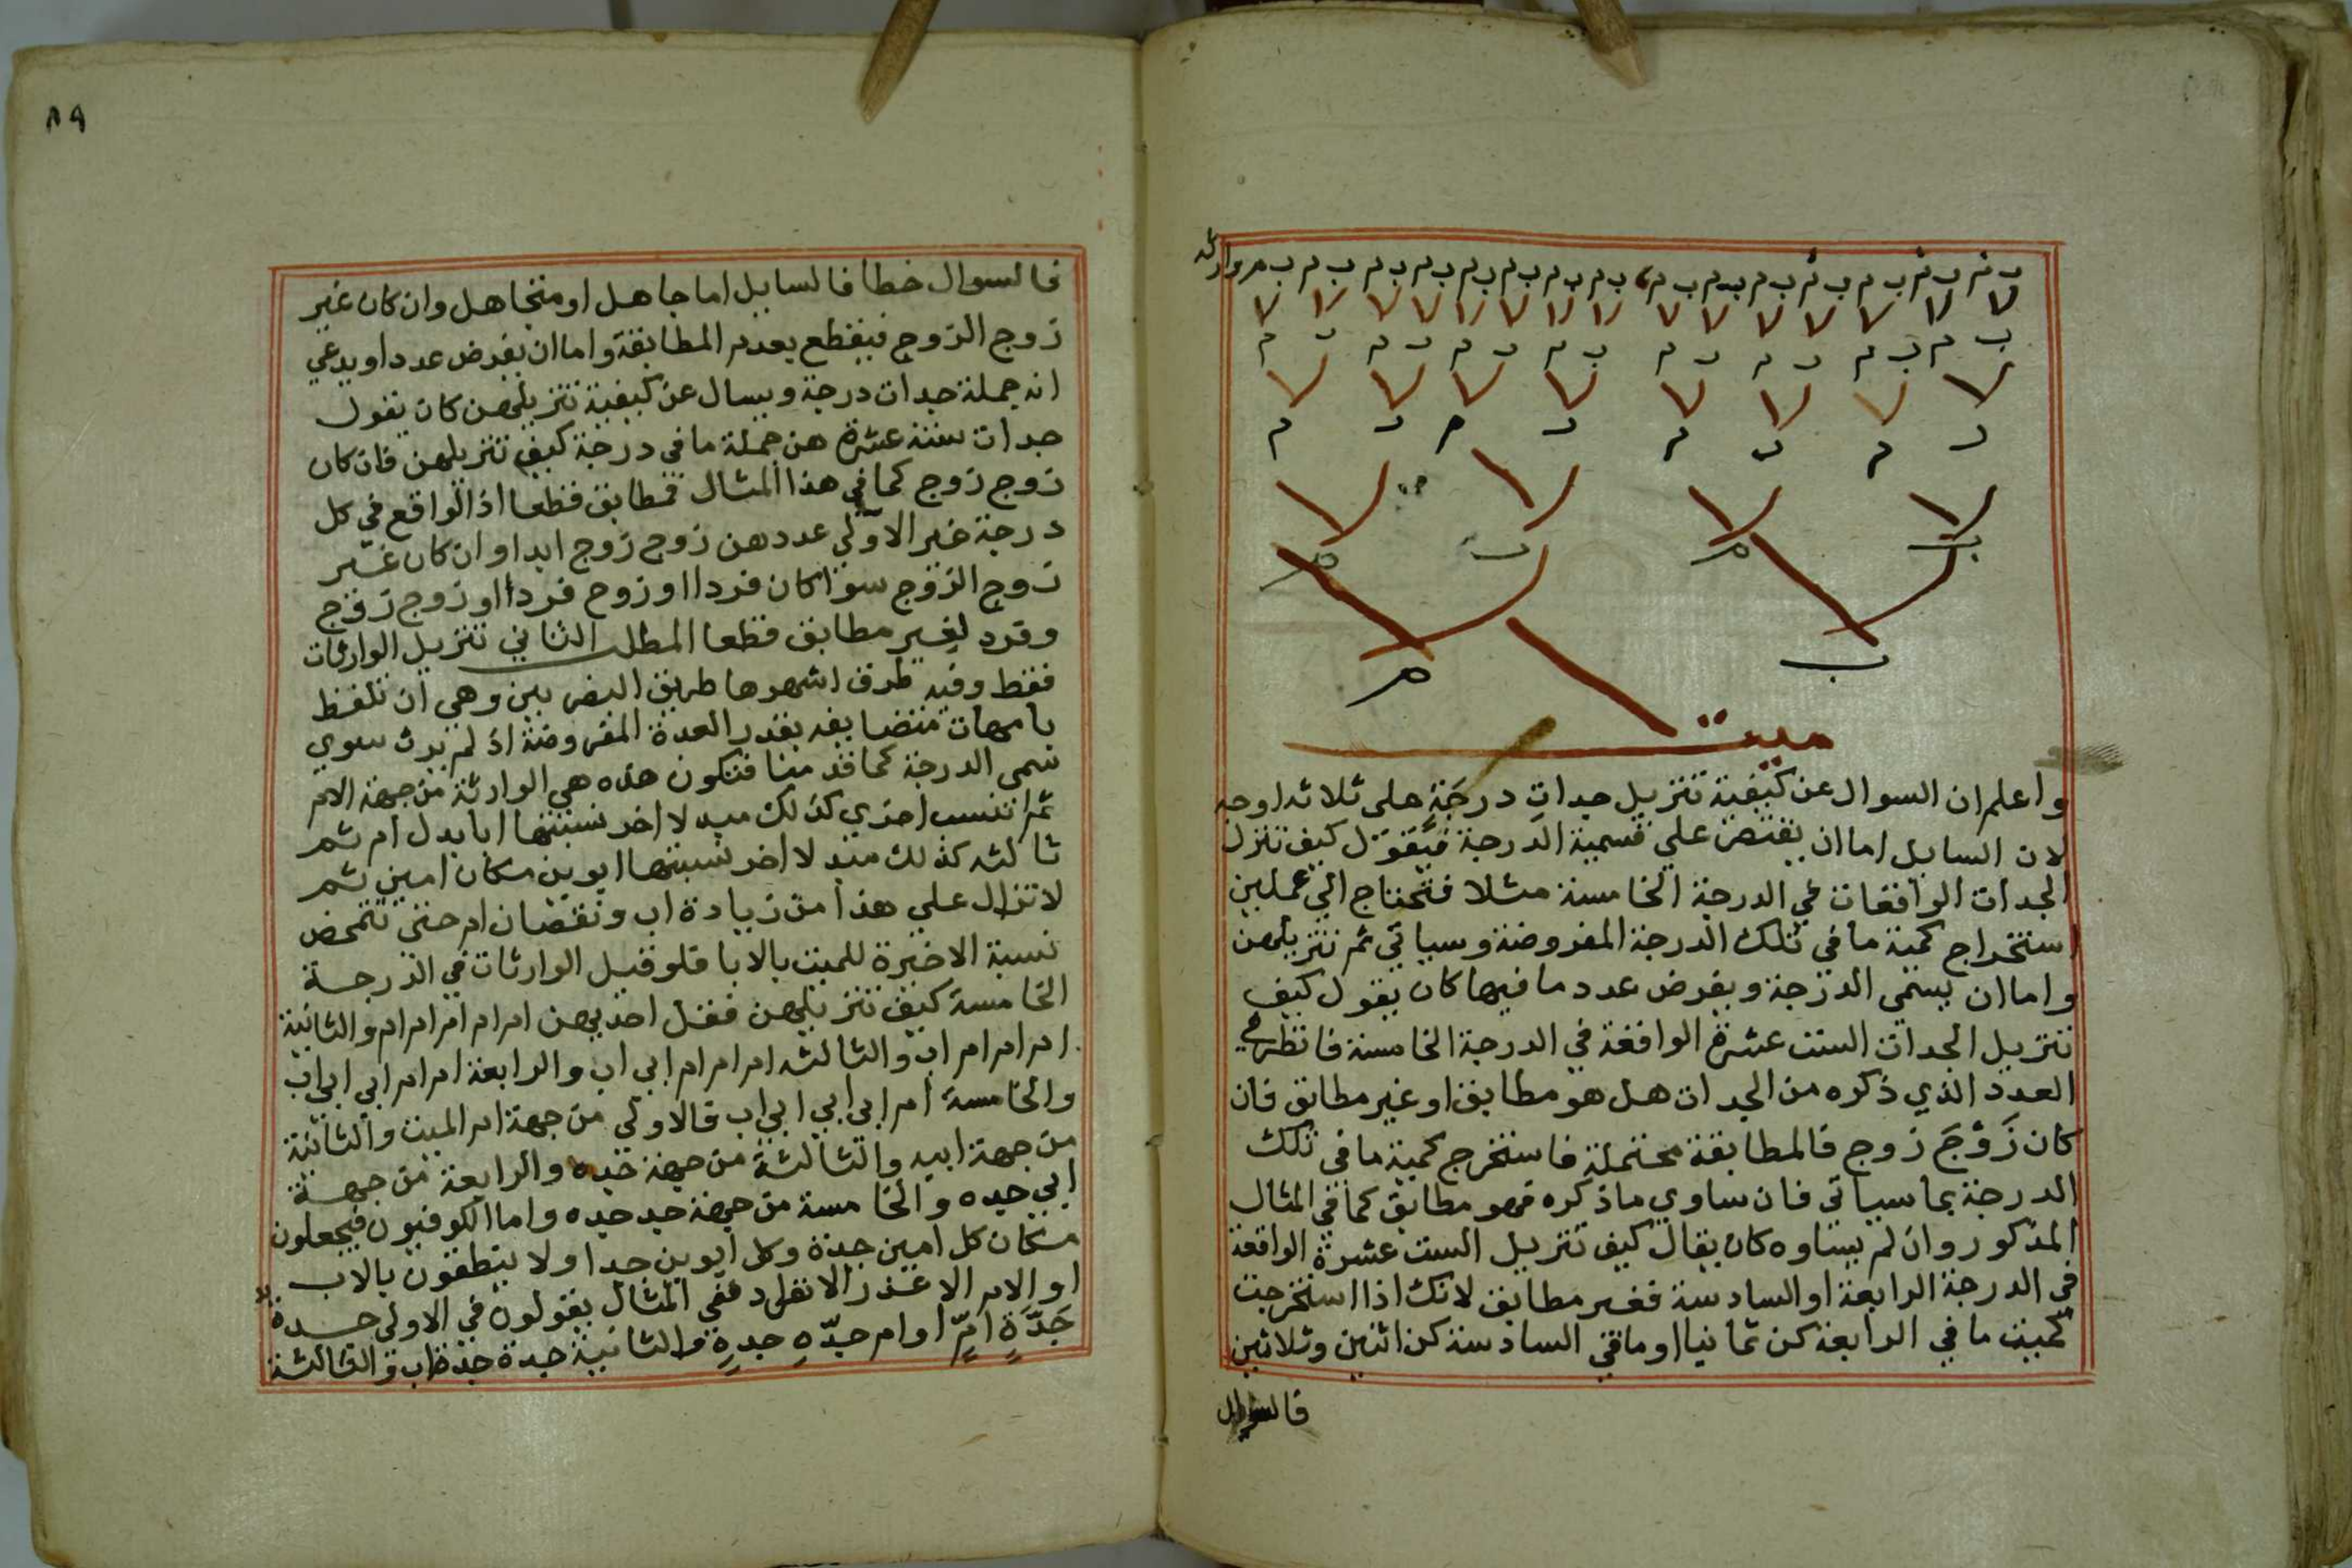 ب م ب م ب م ب م ب م ب م ب م ب م ب م ب م ب م ب م ب م ب م ب م ب م وارثة
ب م ب م ب م ب م ب م ب م ب م ب م
ب م ب م ب م ب م
ب م ب م
ب م
ميت
واعلم ان السوال عن كيفية تنزيل جداتِ درجَةٍ على ثلاثه اوجه
لان السايل اما ان يقتصر علي تسمية الدرجة فيقول كيف تنزل
الجدات الواقعات في الدرجة الخامسة مثلا فتحتاج الي عملين
استخراج كمية ما في تلك الدرجة المفروضة وسياتي ثم تنزيلهن
واما ان يسمى الدرجة ويفرض عدد ما فيها كان يقول كيف
تنزيل الجدات الست عشرة الواقعة في الدرجة الخامسة فانظر في
العدد الذي ذكره من الجدات هل هو مطابق او غير مطابق فان
كان زَوْجَ زوج فالمطابقة محتملة فاستخرج كمية ما في تلك
الدرجة بما سياتي فان ساوي ما ذكره فهو مطابق كما في المثال
المذكور وان لم يساوه كان يقال كيف تنزيل الست عشرة الواقعة
في الدرجة الرابعة او السادسة فغير مطابق لانك اذا استخرجت
كميت ما في الرابعة كن ثمانيا او ما في السادسة كن اثنين وثلاثين
فالسوال
٨٩
فالسوال خطأ فالسايل اما جاهل او متجاهل وان كان غير
زوج الزوج فيقطع بعدم المطابقة واما ان يفرض عددا ويدعي
انه جملة جدات درجة ويسال عن كيفية تنزيلهن كان يقول
جدات ستة عشرة هن جملة ما في درجة كيف تنزيلهن فان كان
زوج زوج كما في هذا المثال فمطابق قطعا اذ الواقع في كل
درجة غير الاولي عددهن زوج زوج ابدا وان كان غير
زوج الزوج سوا كان فردا او زوح فردا او زوج زوج
وفرد لغير مطابق قطعا المطلب الثاني تنزيل الوارثات
فقط وفيه طرق اشهرها طريق البصريين وهي ان تلفظ
بامهات متضايفه بقدر العدة المفروضة اذ لم يرث سوي
سمى الدرجة كما قدمنا فتكون هذه هي الوارثة من جهة الام
ثم تنسب اخري كذلك مبدلا اخر نسبتها ابا بدل ام ثم
ثالثه كذلك مبدلا اخر نسبتها ابوين مكان امين ثم
لا تزال علي هذا من زيادة اب ونقصان ام حتى تتمحض
نسبة الاخيرة للميت بالابا فلو قيل الوارثات في الدرجة
الخامسة كيف تنزيلهن فقل احديهن ام ام ام ام ام والثانية
ام ام ام ام اب والثالثه ام ام ام ابي اب والرابعة ام ام ابي ابي اب
والخامسة ام ابي ابي ابي اب فالاولي من جهة ام الميت والثانية
من جهة ابيه والثالثة من جهة جده والرابعة من جهة
ابي جده والخامسة من جهة جد جده واما الكوفيون فيجعلون
مكان كل امين جدة وكل ابوين جدا ولا ينطقون بالاب
او الام الا عند الانفراد ففي المثال يقولون في الاولي جدة
جَدَّةِ امٍّ او ام جدّهِ جدةٍ والثانية جدة جدة اب والثالثة